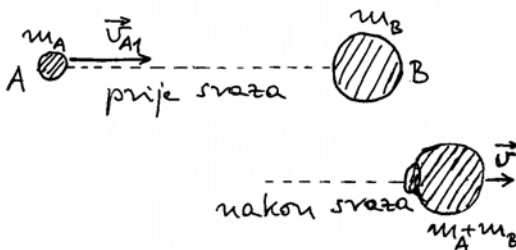 m_A v_A1 m_B
A B
prije sraza
v
nakon sraza
m_A+m_B